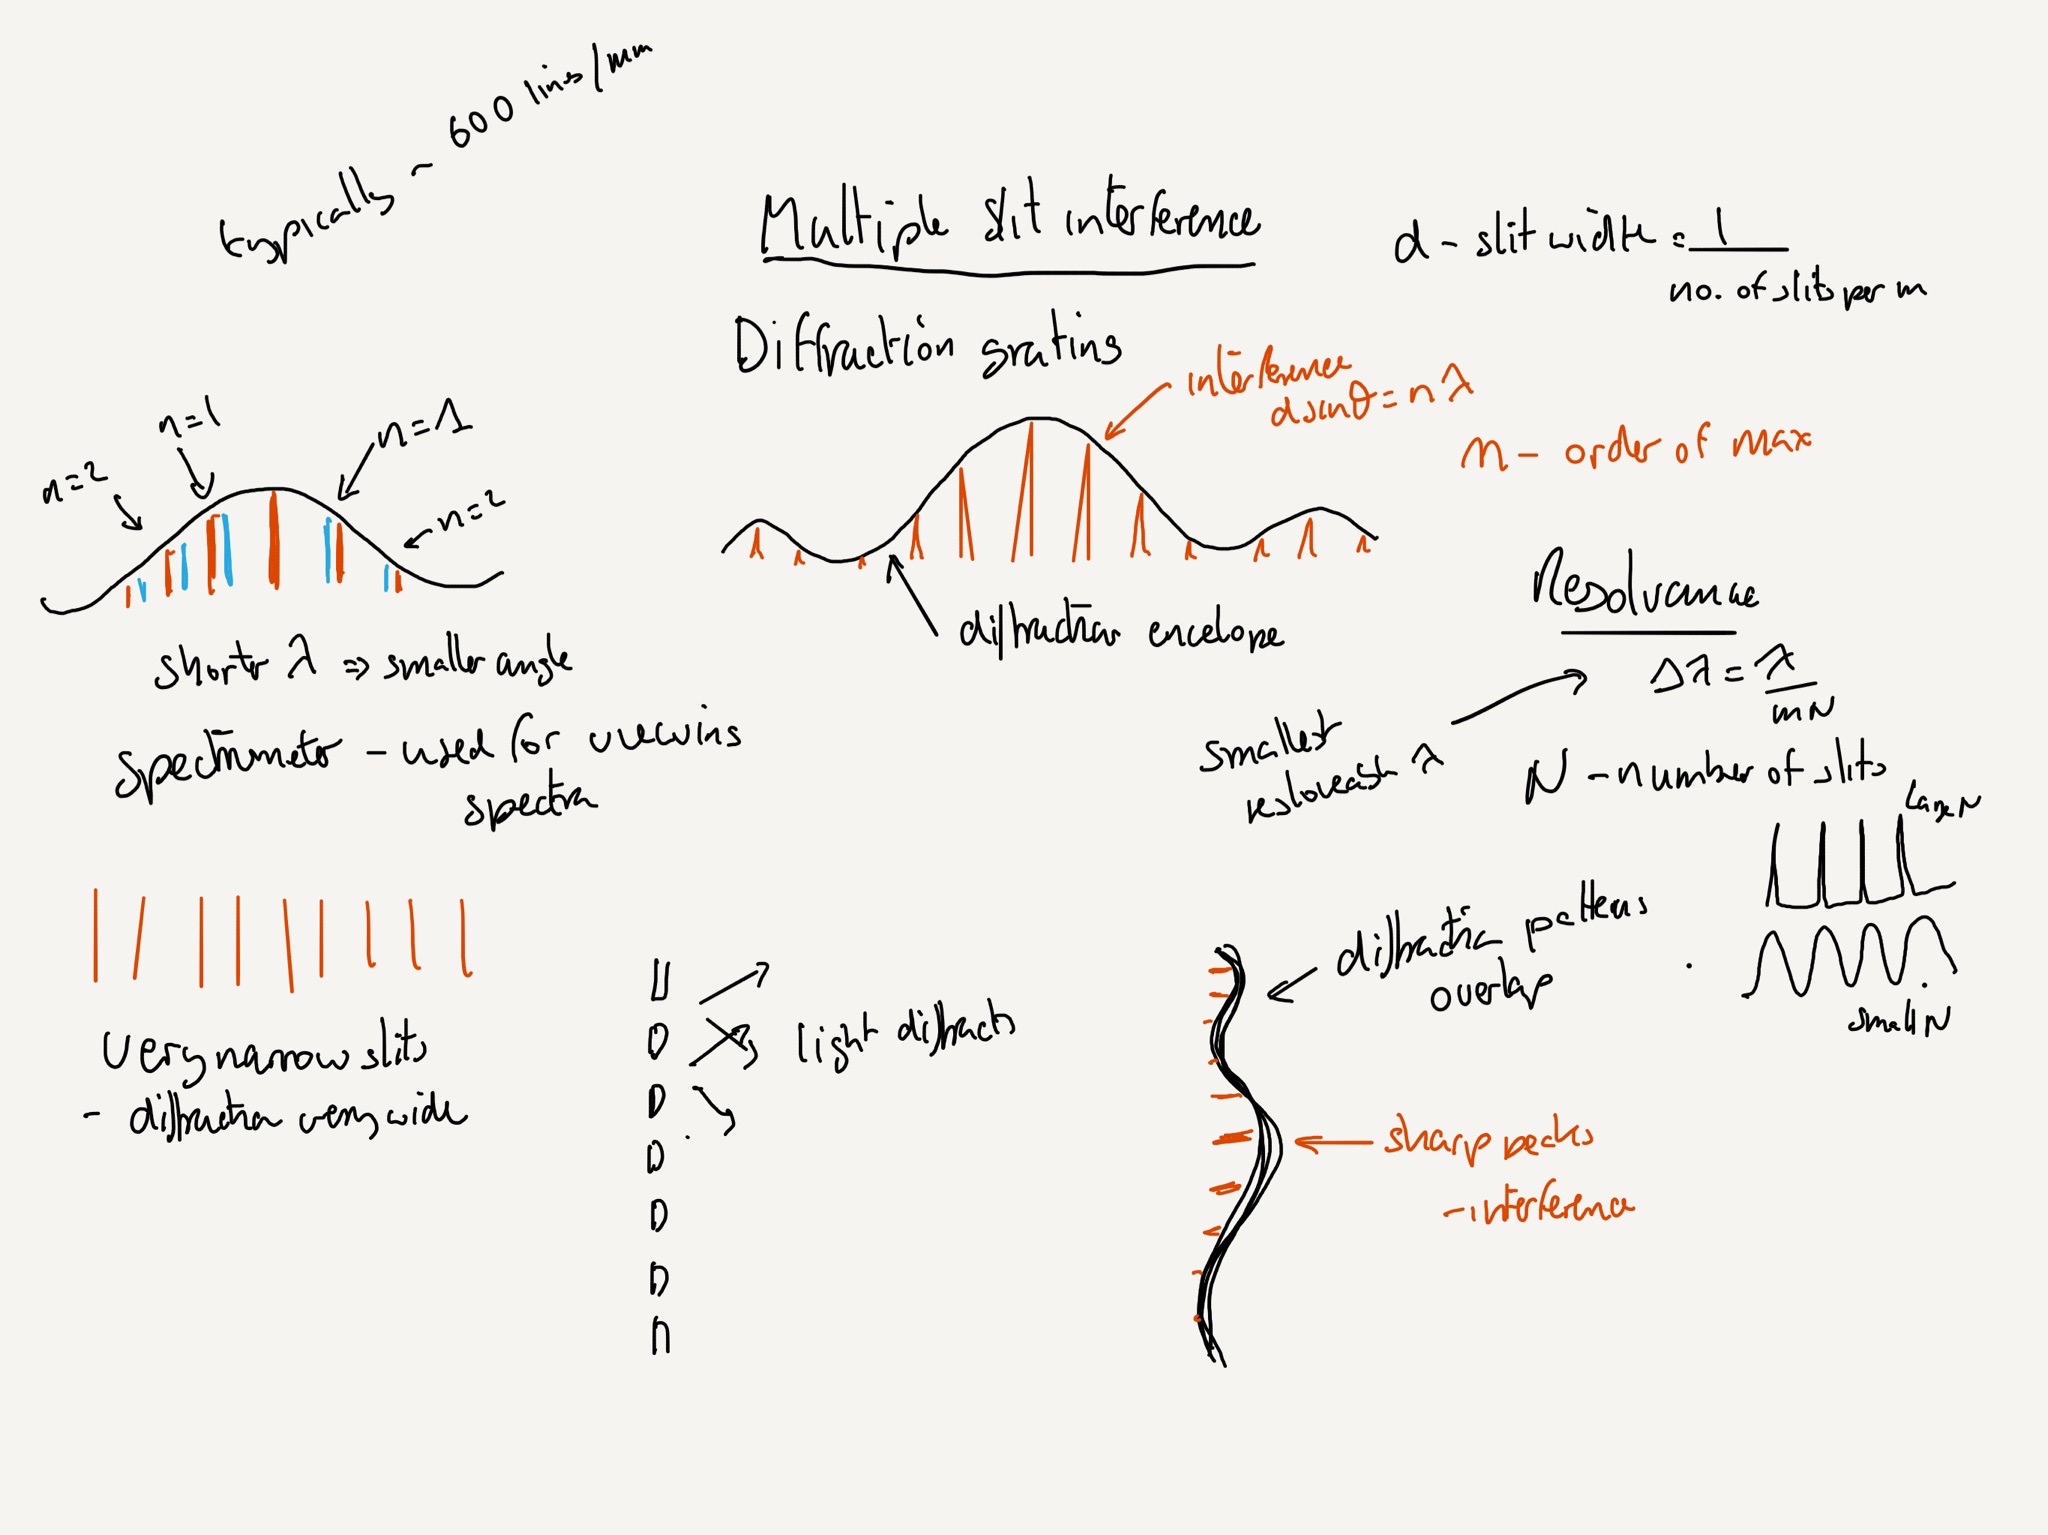 typically ~ 600 lines/mm
Multiple slit interference
d - slit width = 1
no. of slits per m
Diffraction grating
interference
d sin θ = n λ
n - order of max
n=2
n=1
n=1
n=2
diffraction envelope
shorter λ => smaller angle
spectrometer - used for viewing
spectra
Resolvance
Δλ = λ
mN
smallest
λ
N - number of slits
Large N
small N
very narrow slits
- diffraction very wide
light diffracts
diffraction patterns
overlap
sharp peaks
- interference